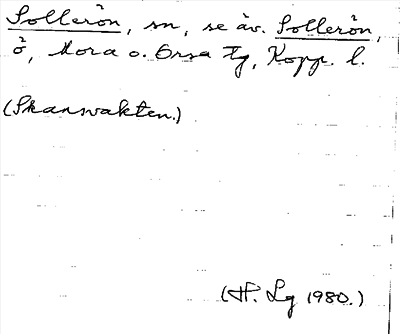 Sollerön, sn, se äv. Sollerön,
ö, Mora o. Orsa tg, Kopp. l.
(Skansvakten.)
(H. Lg 1980.)